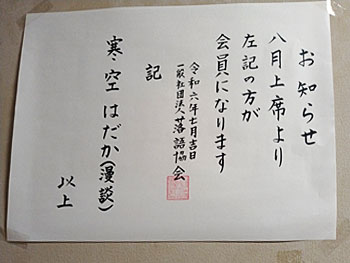 お知らせ
八月上席より
左記の方が
会員になります
令和六年七月吉日
一般社団法人落語協会
記
寒空はだか(漫談)
以上